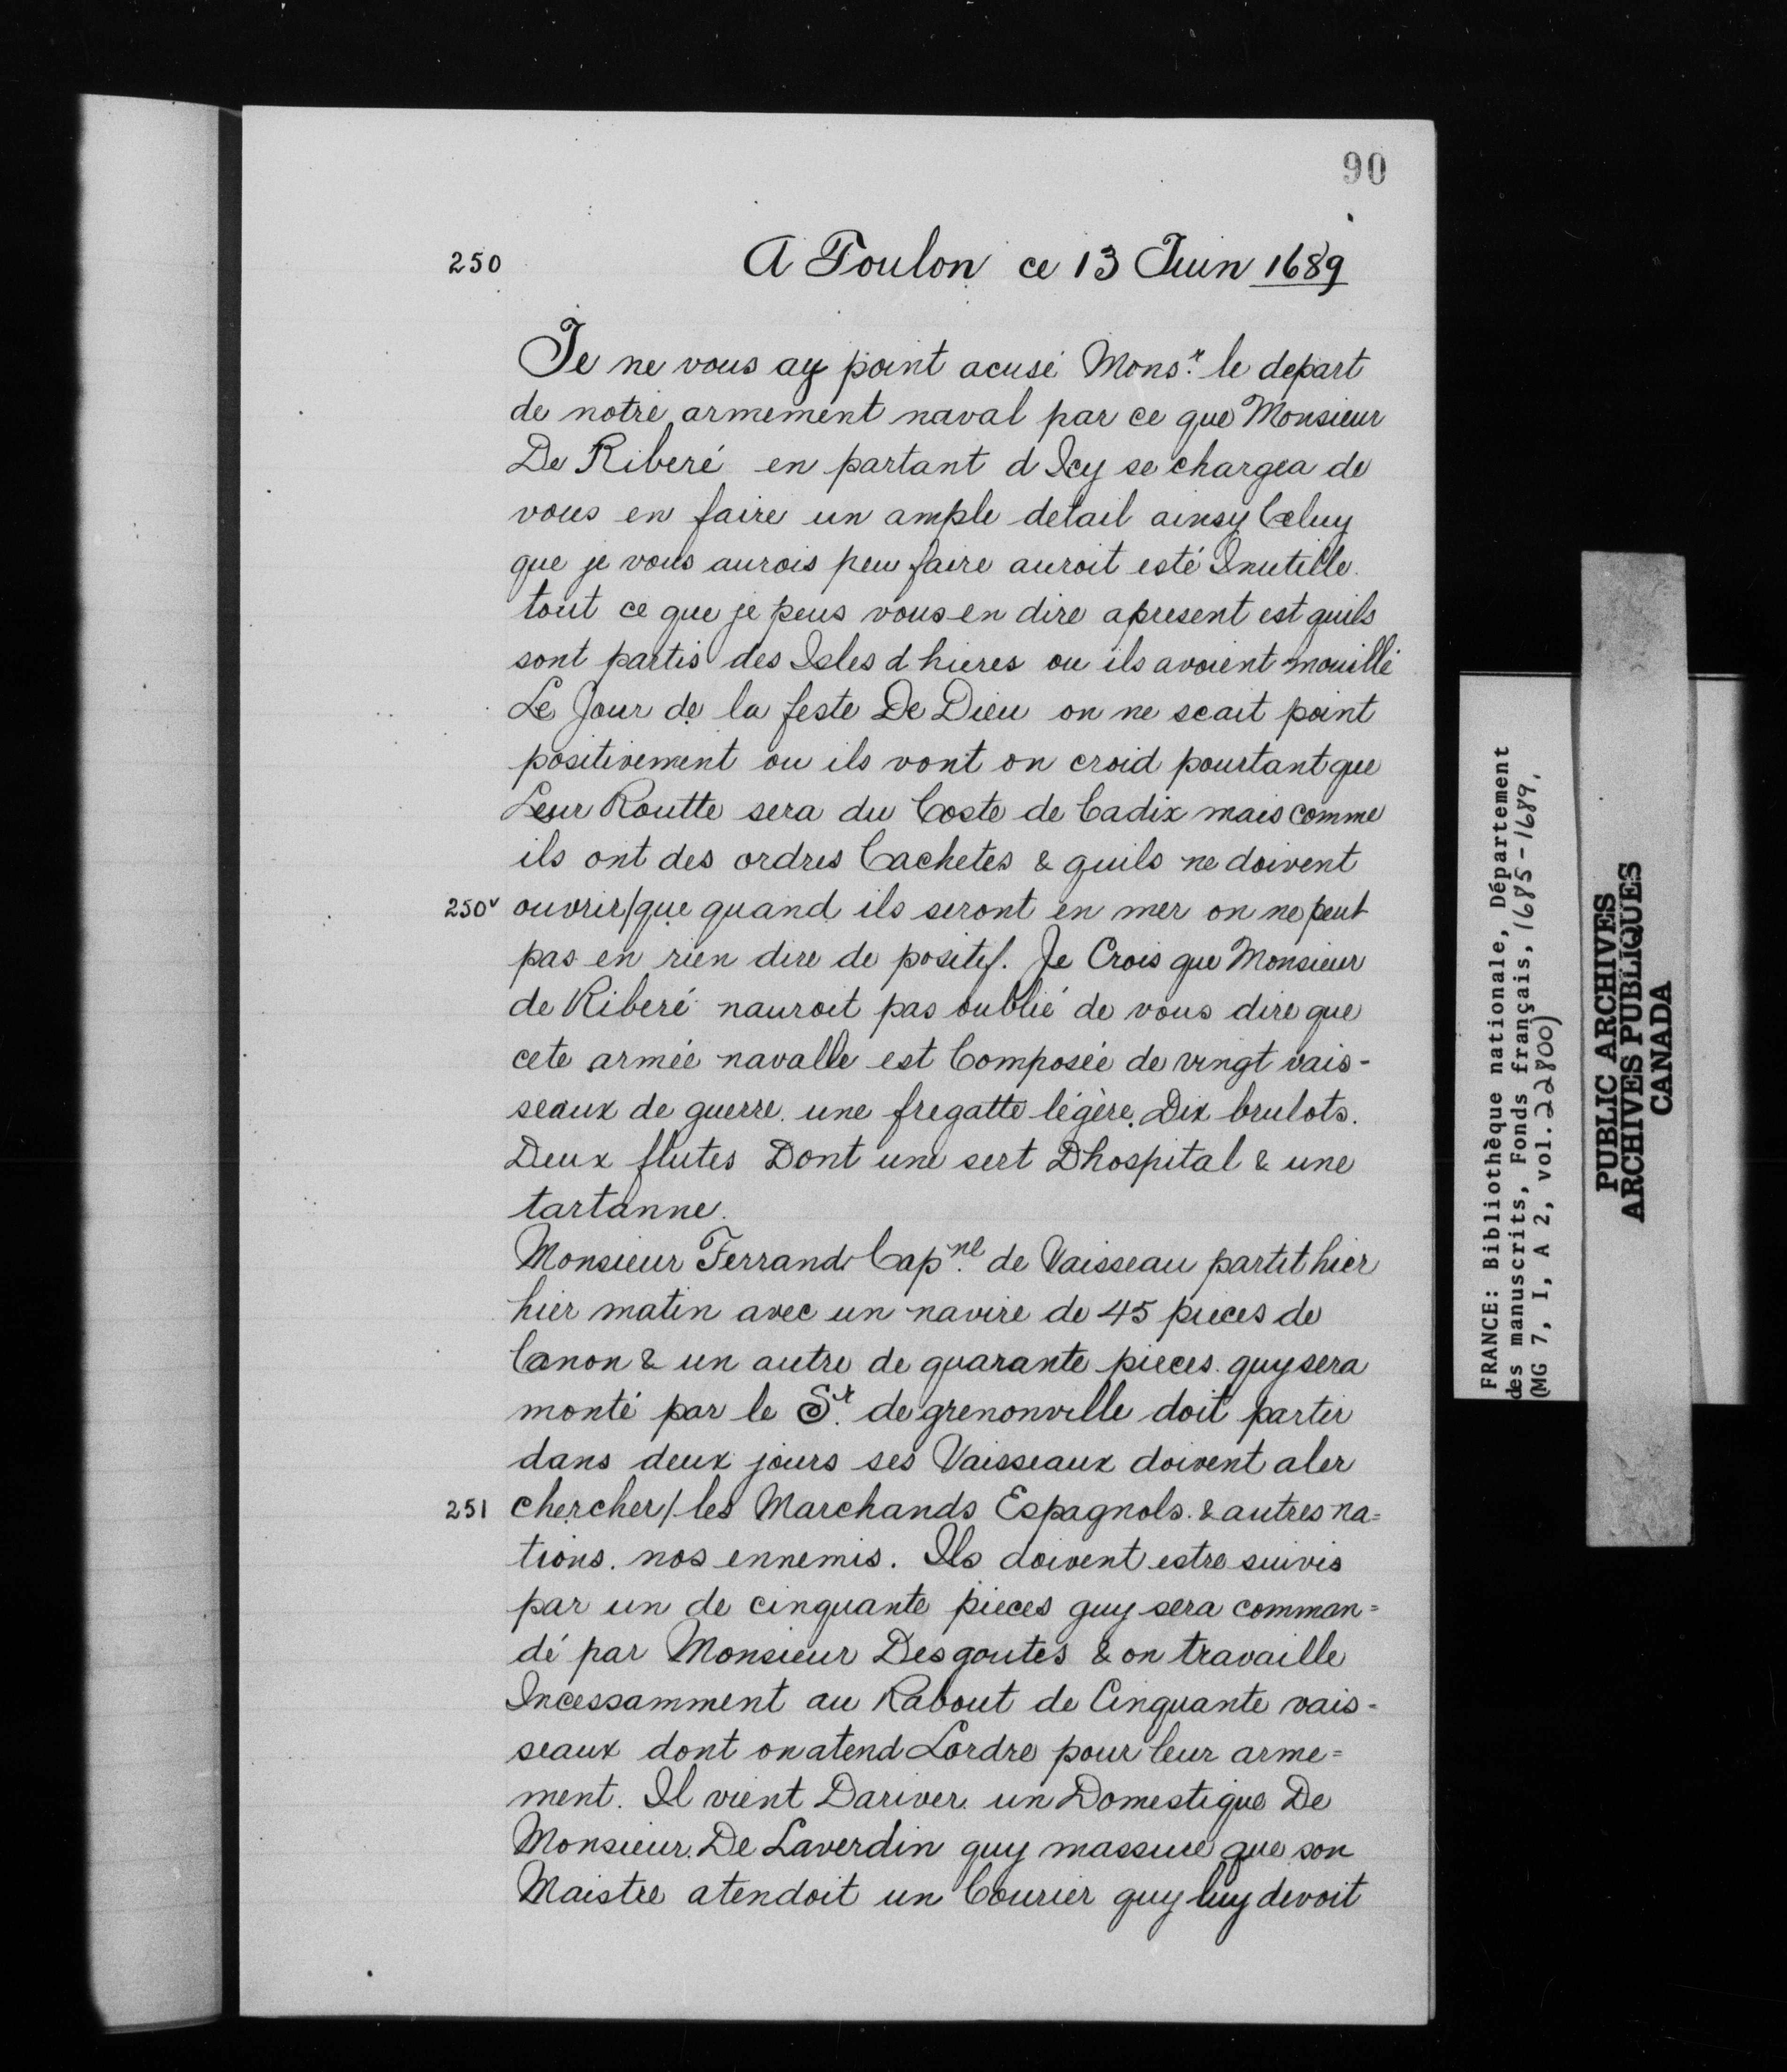 90
250 A Toulon ce 13 Juin 1689
Je ne vous ay point acusé Monsr. le depart
de notre armement naval par ce que Monsieur
De Riberé en partant d Icy se chargea de
vous en faire un ample detail ainsy Celuy
que je vous aurois peu faire auroit esté Inutille.
tout ce que je peus vous en dire apresent est quils
sont partis des Isles d hieres ou ils avoient mouillé
Le Jour de la feste De Dieu on ne scait point
positivement ou ils vont on croid pourtant que
Leur Routte sera du Coste de Cadix mais comme
ils ont des ordres Cachetes & quils ne doivent
250v ouvrir/que quand ils seront en mer on ne peut
pas en rien dire de positif. Je Crois que Monsieur
de Riberé nauroit pas oublié de vous dire que
cete armée navalle est Composée de vingt vais-
seaux de guerre. une fregatte légère. Dix brulots.
Deux flutes Dont une sert Dhospital & une
tartanne.
Monsieur Ferrand Capne. de Vaisseau partit hier
hier matin avec un navire de 45 pieces de
Canon & un autre de quarante pieces. quy sera
monté par le Sr. de grenonville doit partir
dans deux jours ses Vaisseaux doivent aler
251 chercher/les Marchands Espagnols. & autres na=
tions. nos ennemis. Ils doivent estre suivis
par un de cinquante pieces quy sera comman=
dé par Monsieur Desgoutes & on travaille
Incessamment au Rabout de Cinquante vais-
seaux dont on atend Lordre pour leur arme=
ment. Il vient Dariver un Domestique De
Monsieur. De Laverdin quy massure que son
Maistre atendoit un Courier quy luy devoit
FRANCE: Bibliothèque nationale, Département
des manuscrits, Fonds français, 1685-1689.
(MG 7, I, A 2, vol. 22800)
PUBLIC ARCHIVES
ARCHIVES PUBLIQUES
CANADA